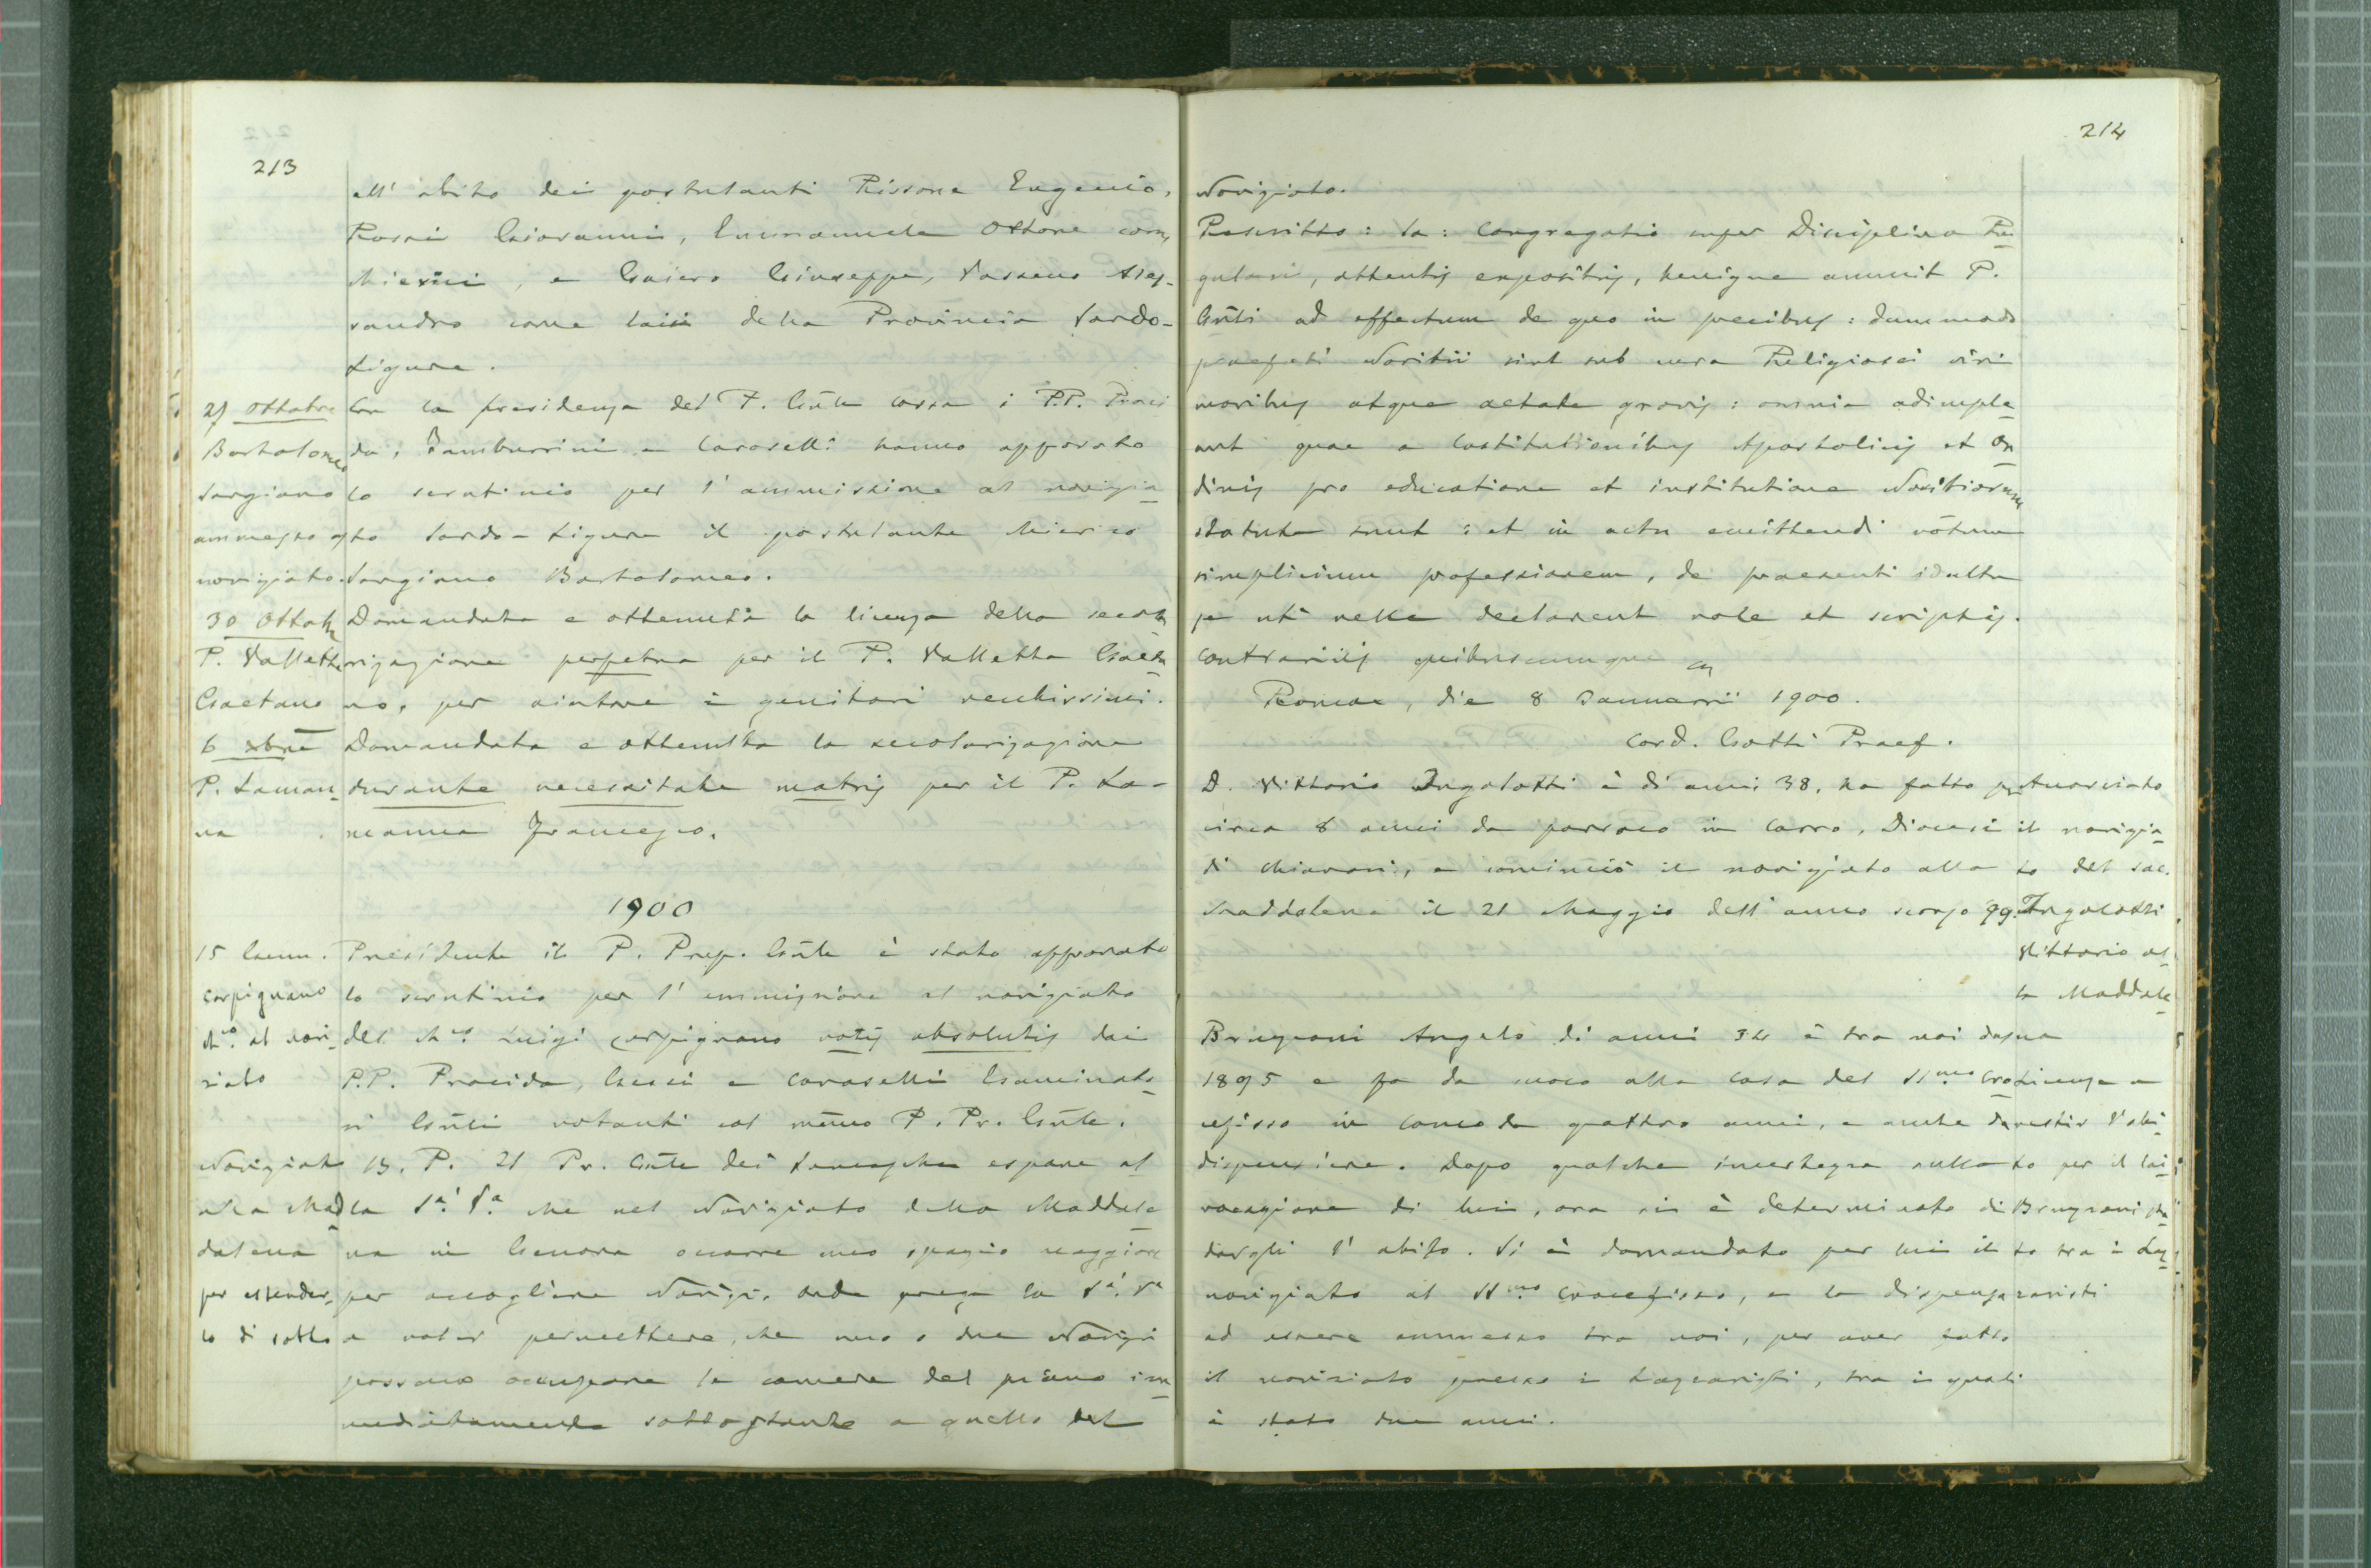 213
all' abito dei postulanti Rissone Eugenio,
Rossi Giovanni, Emmanuele Ottone come
chierici, e Gaiero Giuseppe, Vassena Ales-
sandro come laici della Provincia Sardo-
Ligure.
27 ottobre
Bartolomeo
Sangiano
ammesso al
noviziato.
Con la presidenza del P. Gñle Cossa i P.P. Proci
da, Tamburrini e Caroselli hanno approvato
lo scrutinio per l'ammissione al novizia
to Sardo-Ligure il postulante chierico
Sangiano Bartolomeo.
30 Ottob
P. Valletta
Gaetano
Domandata e ottenuta la licenza della secola
rizzazione perpetua per il P. Valletta Gaeta
no, per aiutare i genitori vecchissimi.
6 xbre
P. Laman
na
Domandata e ottenuta la secolarizzazione
durante necessitate matris per il P. La-
manna Francesco.
1900
15 Genn.
Carpignano
ch.co al novi
ziato
Presidente il P. Prep. Gñle è stato approvato
lo scrutinio per l'ammissione al noviziato
del ch.co Luigi Carpignano votis absolutis dai
P.P. Procida, Gessi e Caroselli Esaminato
ri Gñli votanti col medmo P. Pr. Gñle.
Noviziato
alla Mad
dalena
per estender
lo di sotto
B. P. Il Pr. Gñle dei Somaschi espone al
la S.a V.a che nel Noviziato della Maddale
na in Genova occorre uno spazio maggiore
per accogliere Novizi, onde prega la S.a V.a
a voler permettere, che uno o due Novizi
possano occupare le camere del piano im
mediatamente sottostante a quello del
214
Noviziato.
Rescritto: Sa: Congregatio super Disciplina Re
gulari, attentis expositis, benigne annuit P.
Gñli ad effectum de quo in precibus: dummodo
praefati Novitii sint sub cura Religiosi viri
moribus atque aetate gravis: omnia adimple
ant quae a Costitutionibus Apostolicis et Or
dinis pro educatione et institutione Novitiorum
statuta sunt: et in actu emittendi votum
simplicium professionem, de praesenti
se uti velle declarent voce et scriptis.
Contrariis quibuscumque
Romae, die 8 Januarii 1900.
Card. Gotti Praef.
D. Vittorio Ingolotti è di anni 38, ha fatto per
circa 8 anni da parroco in Carro, Diocesi
di Chiavari, e cominciò il noviziato alla
Maddalena il 21 Maggio dell'anno scorso 99.
Annunciato
il novizia
to del sac.
Ingolotti
Vittorio al
la Maddale
na
Brugnoni Angelo di anni 34 è tra noi dal
1895 e fa da cuoco alla casa del SS.mo Cro
cefisso in Como da quattro anni, e anche da
dispensiere. Dopo qualche incertezza sulla
vocazione di lui, ora si è determinato di
dargli l'abito. Si è domandato per lui il
noviziato al SS.mo Crocefisso, e la dispensa
ad essere ammesso tra noi, per aver fatto
il noviziato presso i Lazzaristi, tra i quali
è stato due anni.
Licenza a
vestir l'abi
to per il lai
Brugnoni sta
to tra i Laz
zaristi